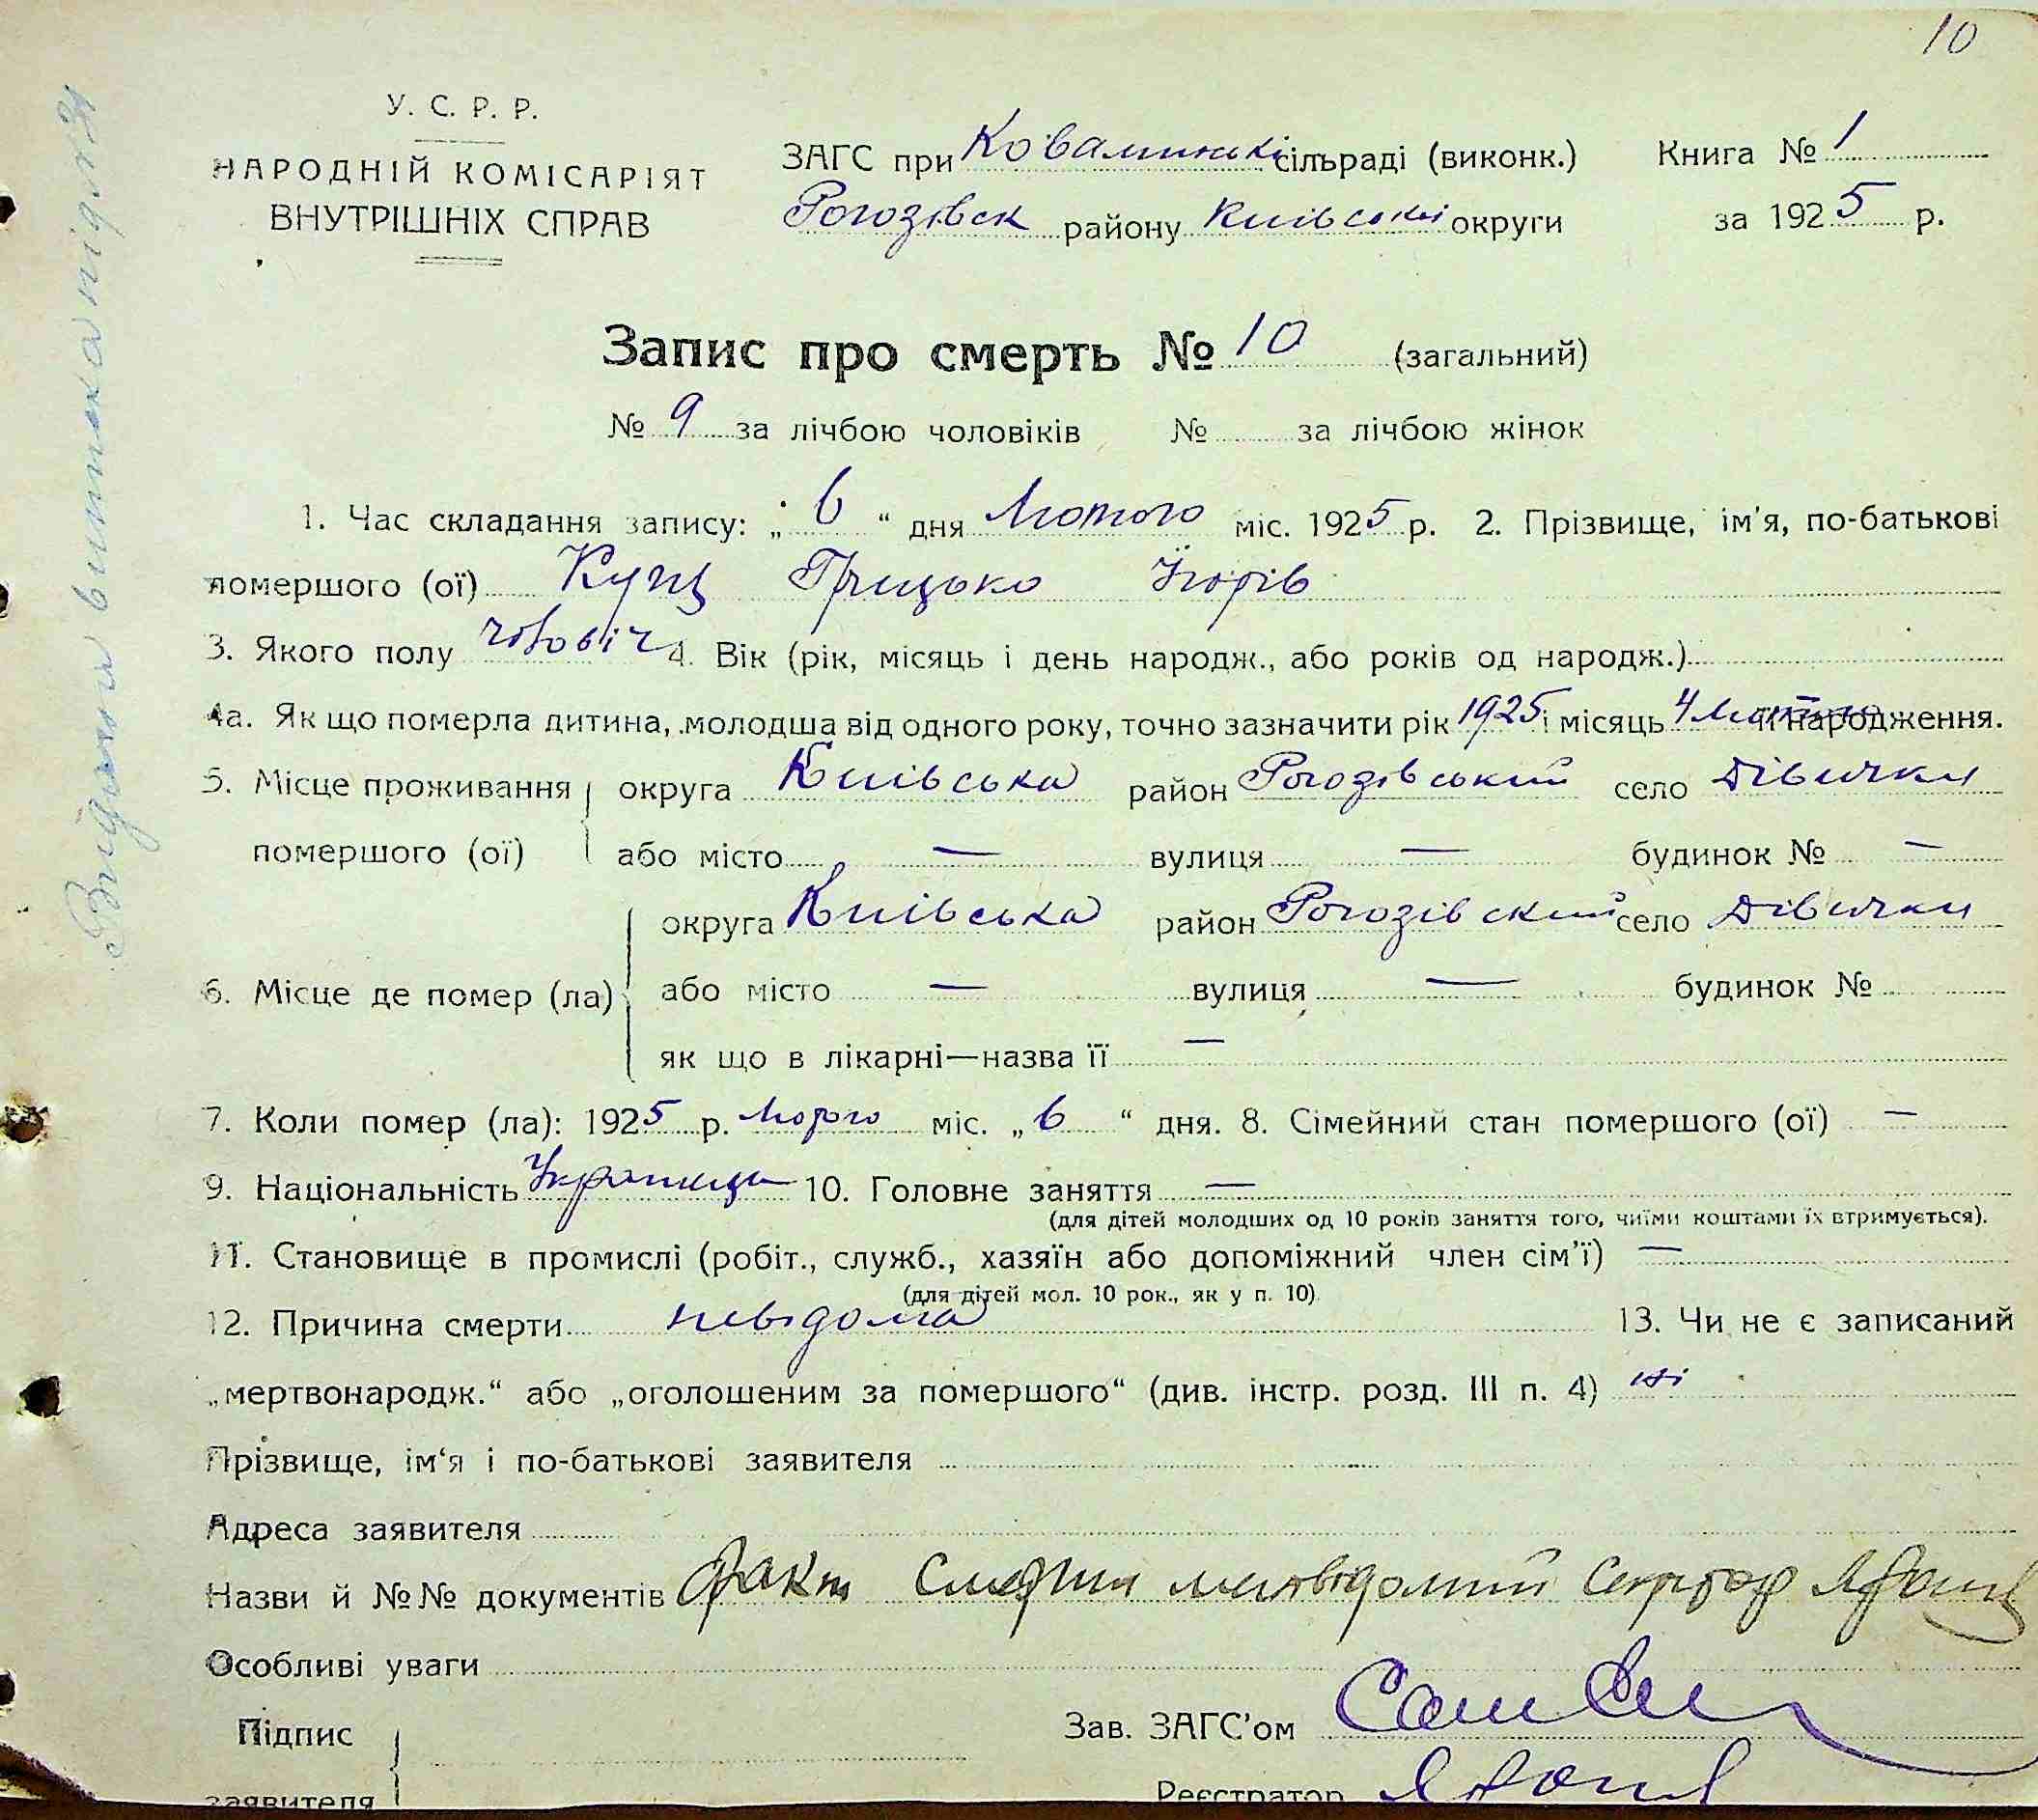 10
У. С. Р. Р.
НАРОДНІЙ КОМІСАРІЯТ
ВНУТРІШНІХ СПРАВ
ЗАГС при Ковалинські сільраді (виконк.)
Рогозівск району Київської округи
Книга № 1
за 1925 р.
Запис про смерть № 10 (загальний)
№ 9 за лічбою чоловіків № за лічбою жінок
1. Час складання запису: „6“ дня Лютого міс. 1925 р. 2. Прізвище, ім'я, по-батькові
помершого (ої) Куць Грицько
3. Якого полу чоловіч 4. Вік (рік, місяць і день народж., або років од народж.)
4а. Як що померла дитина, молодша від одного року, точно зазначити рік 1925 і місяць 4 Лютого її народження.
5. Місце проживання округа Київська район Рогозівський село Дівички
помершого (ої) або місто — вулиця — будинок № —
округа Київська район Рогозівский село Дівички
6. Місце де помер (ла) або місто — вулиця — будинок №
як що в лікарні—назва її —
7. Коли помер (ла): 1925 р. Лютого міс. „6“ дня. 8. Сімейний стан помершого (ої) —
9. Національність Українець 10. Головне заняття —
(для дітей молодших од 10 років заняття того, чиїми коштами їх втримується).
11. Становище в промислі (робіт., служб., хазяїн або допоміжний член сім'ї) —
(для дітей мол. 10 рок., як у п. 10)
12. Причина смерти невідома 13. Чи не є записаний
„мертвонародж.“ або „оголошеним за помершого“ (див. інстр. розд. III п. 4) ні
Прізвище, ім'я і по-батькові заявителя
Адреса заявителя
Назви й №№ документів факт смерти
Особливі уваги
Підпис
заявителя
Зав. ЗАГС'ом
Реєстратор